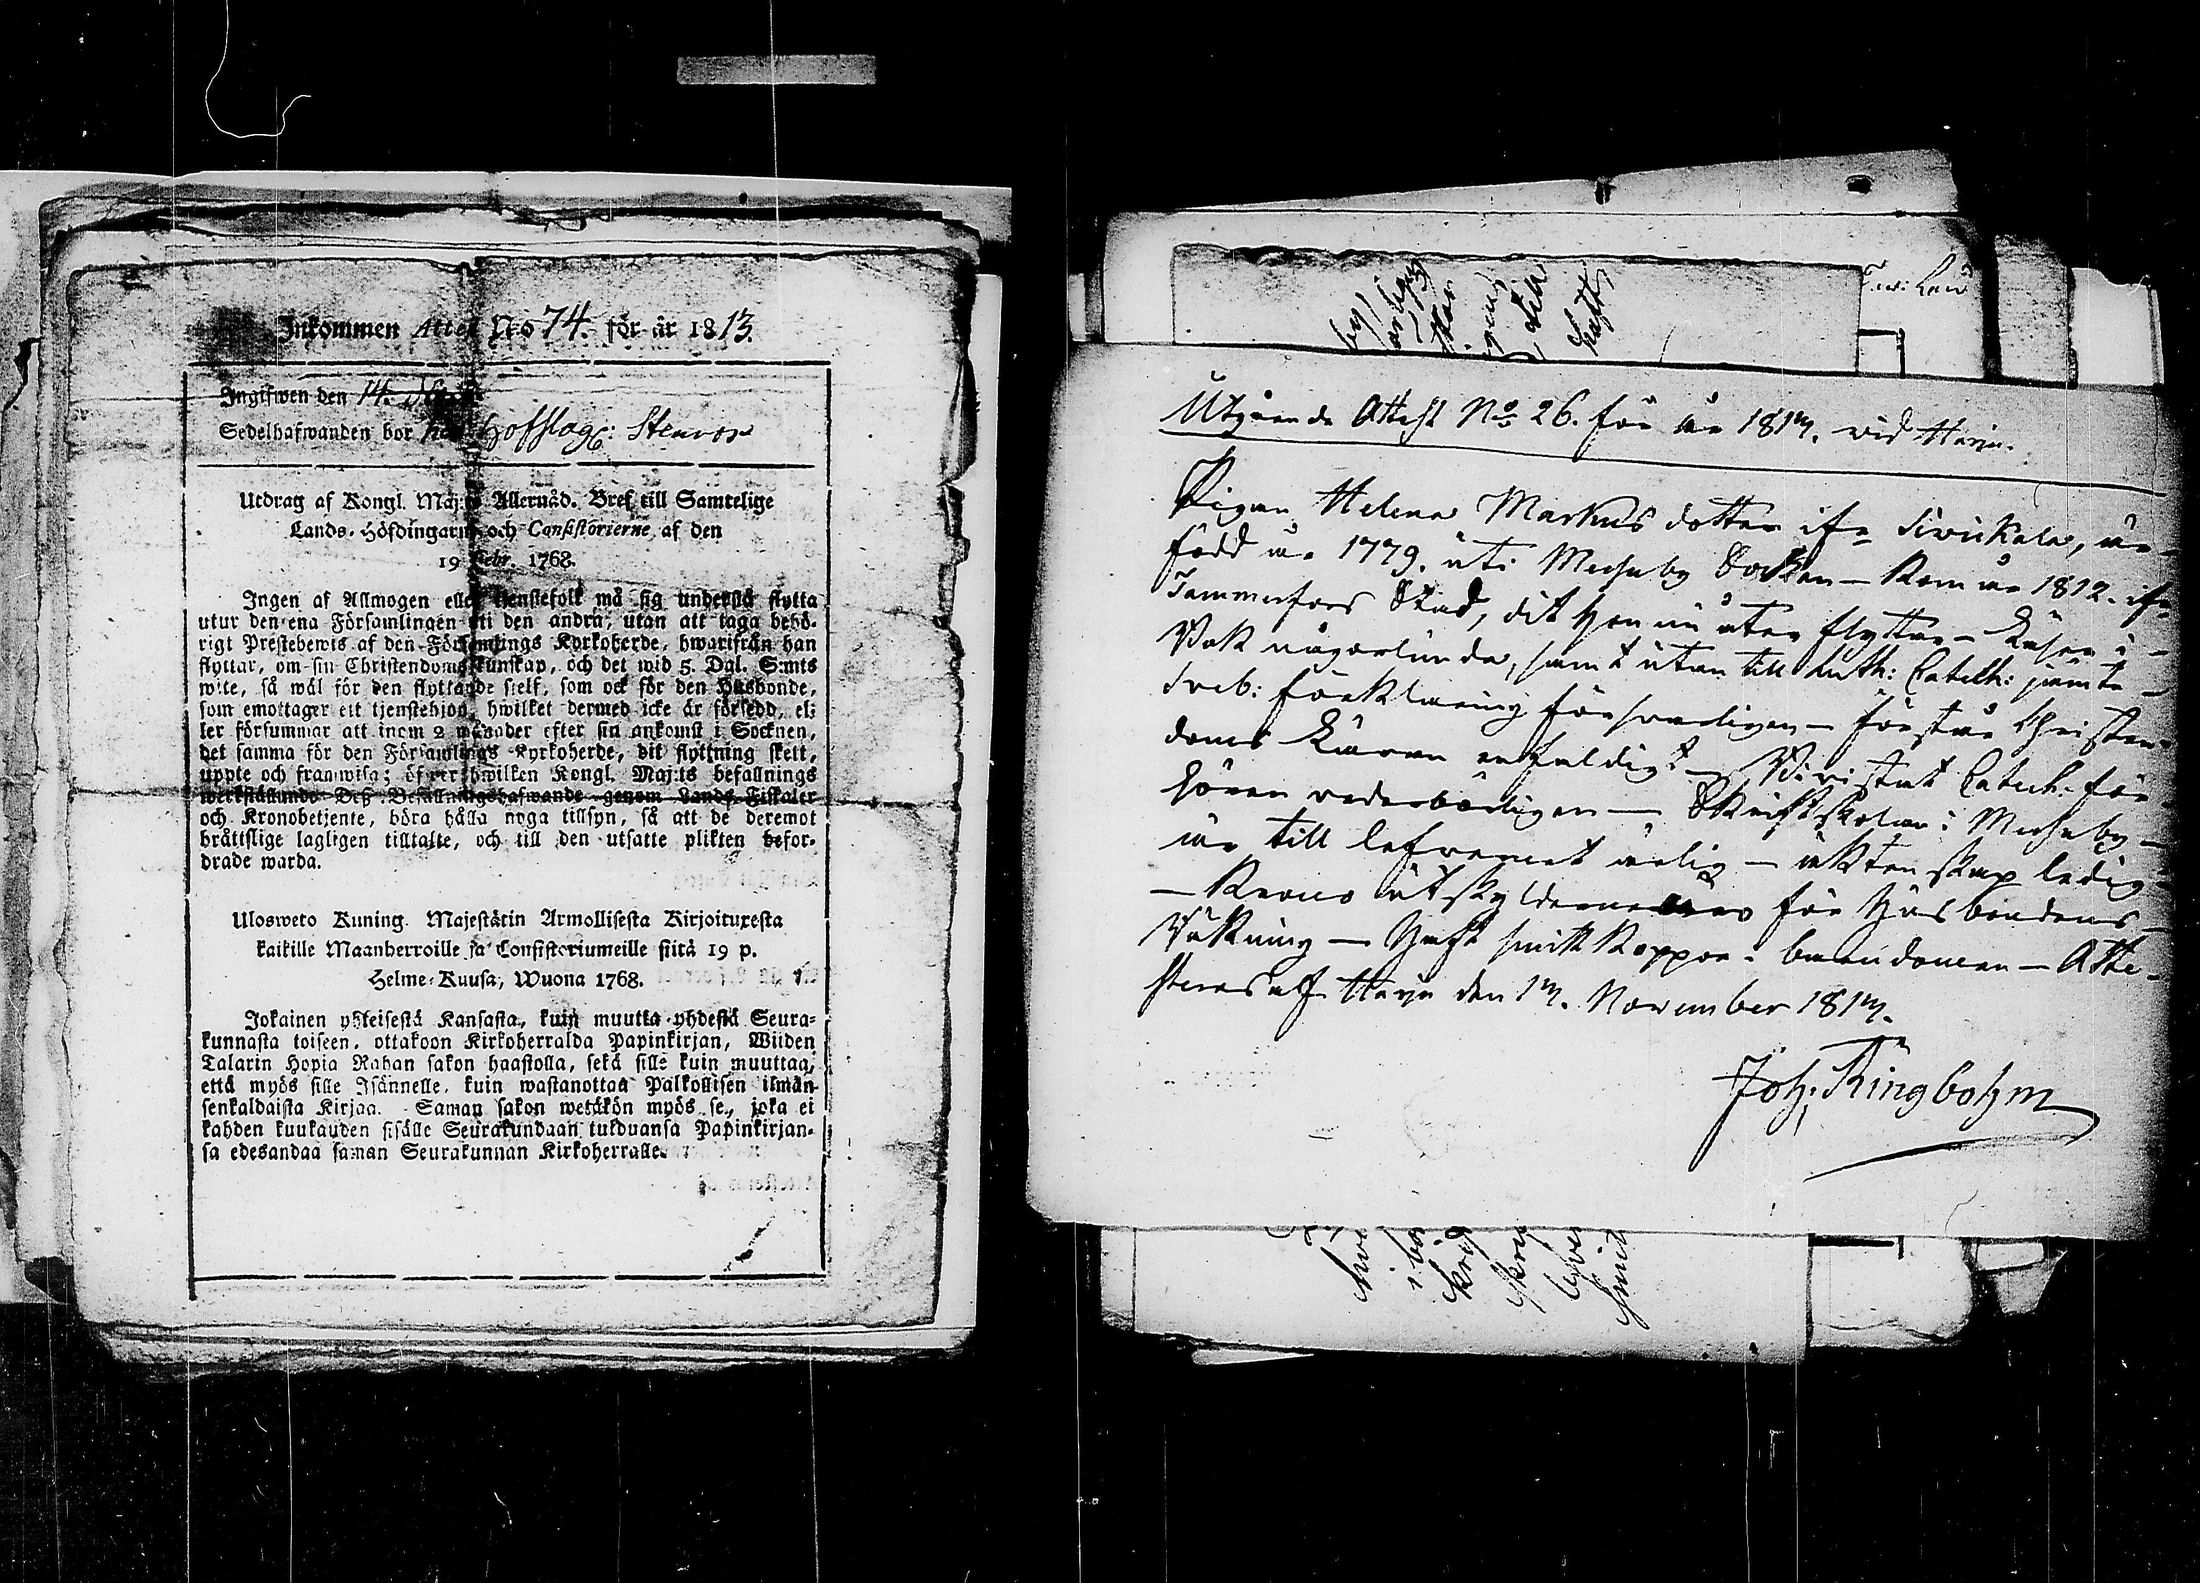 Inkommen Attest No 74. för år 1813.
Ingifwen den 14.
Sedelhafwanden bor hos Hofslag: Stenroos
Utdrag af Kongl. Maj:ts Allernåd. Bref till Samtelige
Lands-Höfdingarne och Consistorierne af den
19 Febr. 1768.
Ingen af Allmogen eller tjenstefolk må sig understå flytta
utur den ena Församlingen uti den andra, utan att taga behö-
rigt Prestebewis af den Församlings Kyrkoherde, hwarifrån han
flyttar, om sin Christendoms kunskap, och det wid 5. Dal. S:mts
wite, så wäl för den flyttande sielf, som ock för den Husbonde,
som emottager ett tjenstehjon, hwilket dermed icke är försedd, el-
ler försummar att inom 2 månader efter sin ankomst i Socknen,
det samma för den Församlings Kyrkoherde, dit flyttning skett,
uppte och framwisa; öfwer hwilken Kongl. Maj:ts befallnings
werkställande Deß Befallningshafwande genom Lands Fiskaler
och Kronobetjente, böra hålla noga tillsyn, så att de deremot
bråttslige lagligen tilltalte, och till den utsatte plikten befor-
drade warda.
Ulosweto Kuning. Majestätin Armollisesta Kirjoituxesta
kaikille Maanherroille ja Consistoriumeille siitä 19 p.
Helme-Kuusa, Wuona 1768.
Jokainen yhteisestä Kansasta, kuin muutta yhdestä Seura-
kunnasta toiseen, ottakoon Kirkoherralda Papinkirjan, Wiiden
Talarin Hopia Rahan sakon haastolla, sekä sille kuin muuttaa,
että myös sille Isännelle, kuin wastanottaa Palkollisen ilman
senkaldaista Kirjaa. Saman sakon wetäkön myös se, joka ei
kahden kuukauden sisälle Seurakundaan tulduansa Papinkirjan-
sa edesandaa saman Seurakunnan Kirkoherralle.
Utgående Attest No 26. för år 1813. vid Harju.
Pigan Helena Markus dotter ifr Siwikala, är
född år 1779. uti Messuby Socken – kom år 1812. ifr
Tammerfors Stad, dit hon nu åter flyttar – Läser i
Bok någorlunda, samt utan till Luth: Catech: jämte
Sveb: förklaring försvarligen – förstår Christen-
doms Läran enfaldigt – Bivistat Catech. för-
hören vederbörligen – Skriftskolan i Messuby –
är till lefvernet ärlig – äktenskap ledig
– Krono utskylderne för Husbondens
Räkning – Haft smittkoppor i barndomen – Atte-
steras af Harju den 13. November 1813.
Joh: Ringbohm